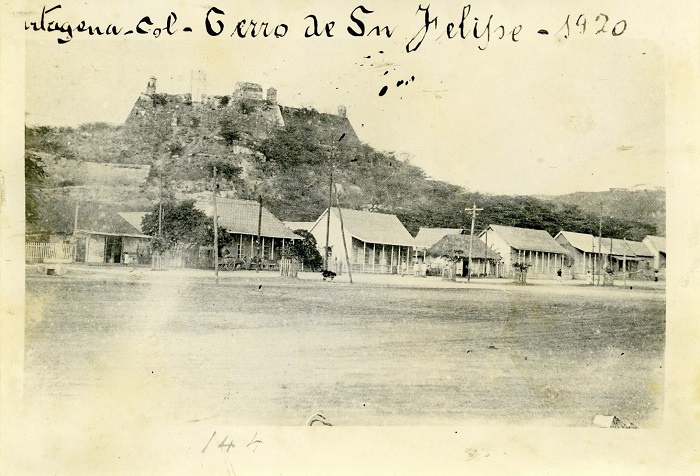 rtagena-Col- Cerro de Sn Felipe-1920
144